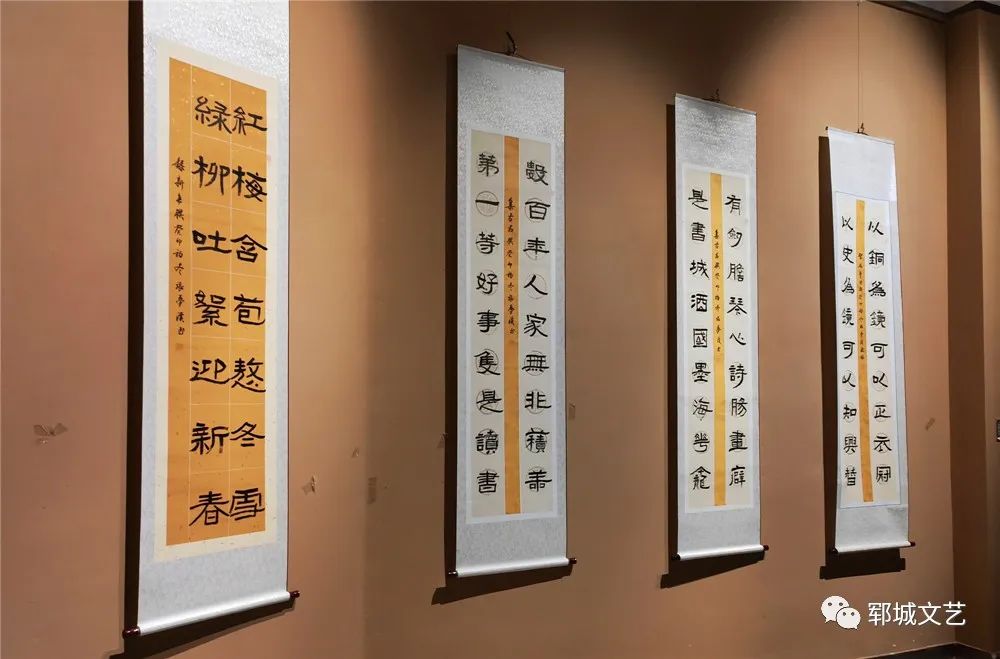 紅梅含苞熬冬雪
緑柳吐絮迎新春
數百年人家無非積善
第一等好事隻是讀書
有劍膽琴心詩腸畫癖
是書城酒國墨海龕
以銅爲鏡可以正衣冠
以史爲鏡可以知興替
郓城文艺